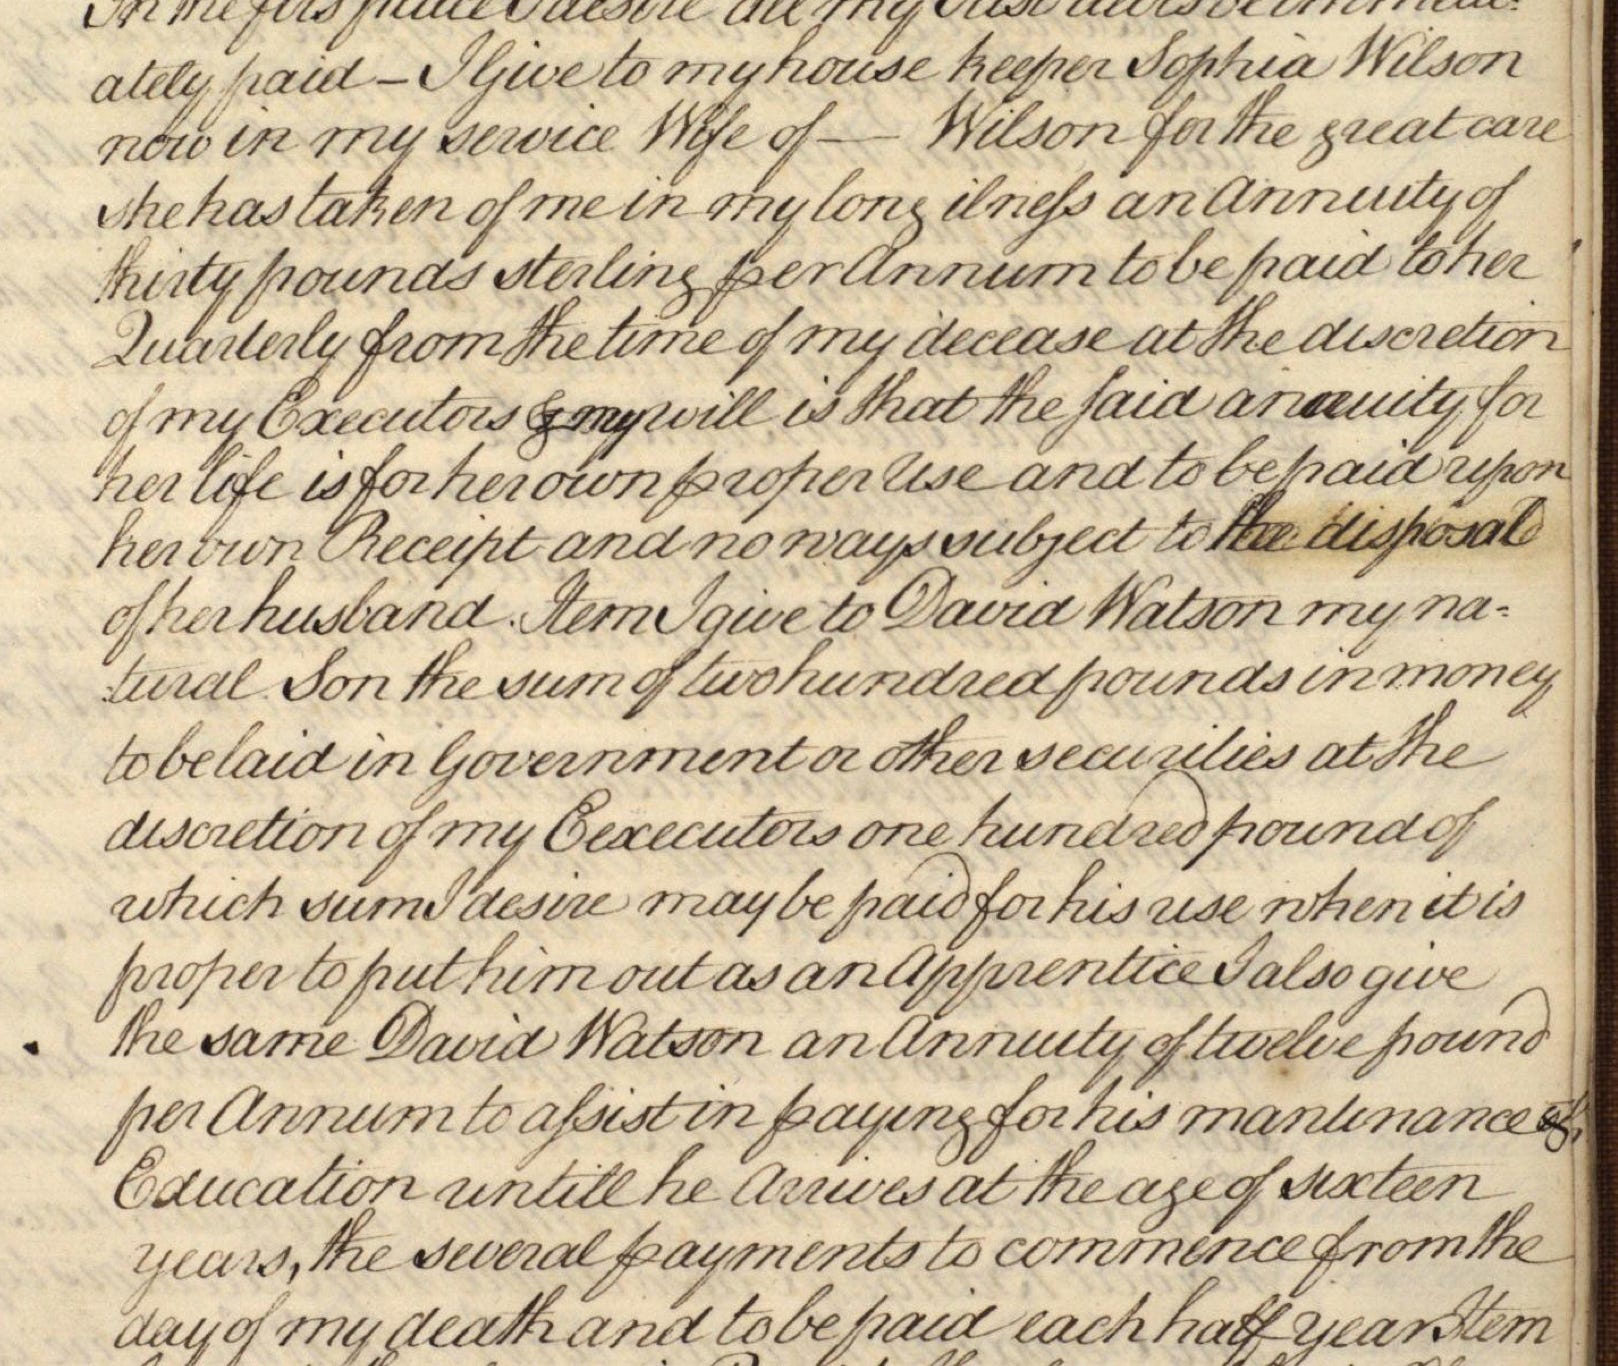 In the first place I desire all my Just debts be immedi-
ately paid – I Give to my house keeper Sophia Wilson
now in my service Wife of — Wilson for the great care
she has taken of me in my long ilness an Annuity of
thirty pounds sterling per Annum to be paid to her
Quarterly from the time of my decease at the discretion
of my Executors & my will is that the said anuity for
her life is for her own proper Use and to be paid upon
her own Receipt and no ways subject to the disposal
of her husband. Item I give to David Watson my na-
:tural Son the sum of two hundred pounds in money
to be laid in Government or other securities at the
discretion of my Eexecutors one hundred pound of
which sum I desire may be paid for his use when it is
proper to put him out as an Apprentice I also give
the same David Watson an Annuity of twelve pound
per Annum to assist in paying for his mantinance &
Education untill he Arrives at the age of sixteen
years, the several payments to commence from the
day of my death and to be paid each half year Item